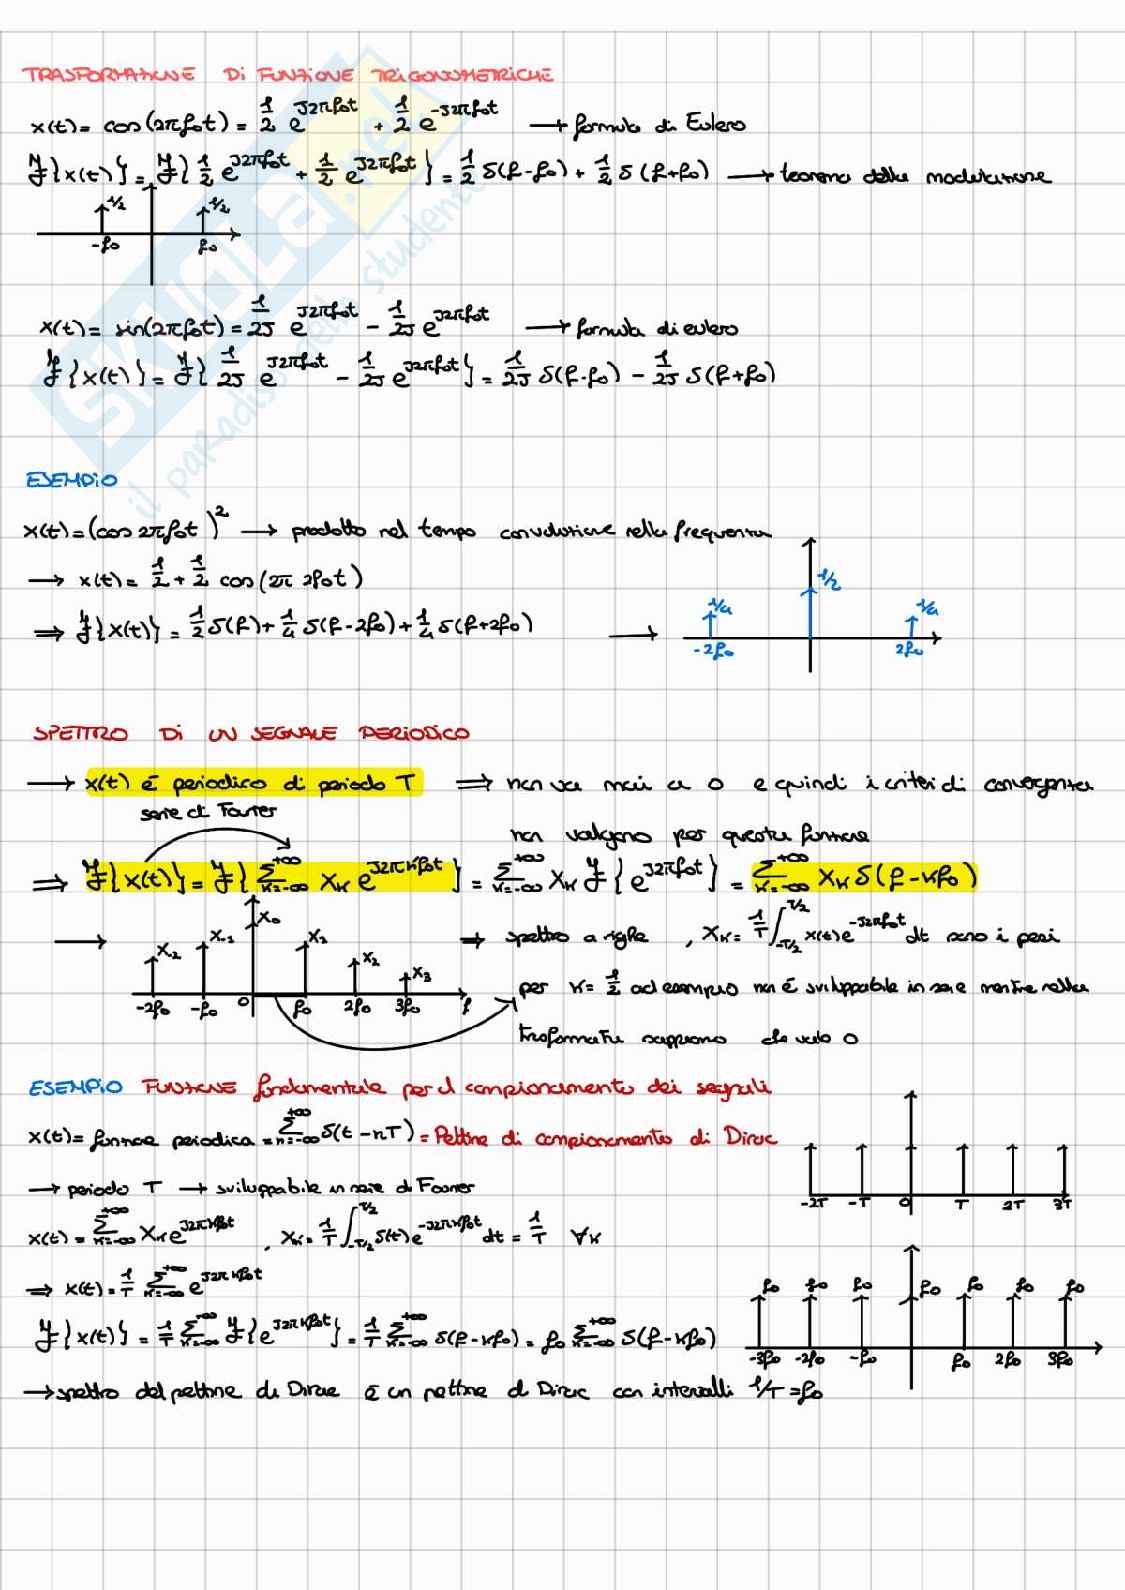 TRASFORMAZIONE DI FUNZIONE TRIGONOMETRICHE
x(t) = cos(2πf₀t) = 1/2 e^{J2πf₀t} + 1/2 e^{-J2πf₀t} → formula di Eulero
F{x(t)} = F{1/2 e^{J2πf₀t} + 1/2 e^{J2πf₀t}} = 1/2 δ(f-f₀) + 1/2 δ(f+f₀) → teorema della modulazione
1/2 1/2
-f₀ f₀
x(t) = sin(2πf₀t) = 1/2J e^{J2πf₀t} - 1/2J e^{J2πf₀t} → formula di eulero
F{x(t)} = F{1/2J e^{J2πf₀t} - 1/2J e^{J2πf₀t}} = 1/2J δ(f-f₀) - 1/2J δ(f+f₀)
SKUOLA.net
il paradiso dello studente
ESEMPIO
x(t) = (cos 2πf₀t)² → prodotto nel tempo convoluzione nella frequenza
→ x(t) = 1/2 + 1/2 cos(2π 2f₀t)
⇒ F{x(t)} = 1/2 δ(f) + 1/4 δ(f-2f₀) + 1/4 δ(f+2f₀) →
1/4 1/2 1/4
-2f₀ 2f₀
SPETTRO DI UN SEGNALE PERIODICO
→ x(t) è periodico di periodo T ⇒ non va mai a 0 e quindi i criteri di convergenza
non valgono per questa funzione
serie di Fourier
⇒ F{x(t)} = F{Σ_{k=-∞}^{+∞} X_k e^{J2πkf₀t}} = Σ_{k=-∞}^{+∞} X_k F{e^{J2πf₀t}} = Σ_{k=-∞}^{+∞} X_k δ(f-kf₀)
→ X₋₂ X₋₁ X₀ X₁ X₂ X₃
-2f₀ -f₀ 0 f₀ 2f₀ 3f₀ f
⇒ spettro a righe , X_k = 1/T ∫_{-T/2}^{T/2} x(t)e^{-J2πf₀t} dt sono i pesi
per k = 1/2 ad esempio non è sviluppabile in serie mentre nella
trasformata sappiamo che vale 0
ESEMPIO FUNZIONE fondamentale per il campionamento dei segnali
x(t) = funzione periodica = Σ_{n=-∞}^{+∞} δ(t-nT) = Pettine di campionamento di Dirac
-2T -T 0 T 2T 3T
→ periodo T → sviluppabile in serie di Fourier
x(t) = Σ_{k=-∞}^{+∞} X_k e^{J2πkf₀t} , X_k = 1/T ∫_{-T/2}^{T/2} δ(t)e^{-J2πkf₀t} dt = 1/T ∀k
⇒ x(t) = 1/T Σ_{k=-∞}^{+∞} e^{J2πkf₀t}
F{x(t)} = 1/T Σ_{k=-∞}^{+∞} F{e^{J2πkf₀t}} = 1/T Σ_{k=-∞}^{+∞} δ(f-kf₀) = f₀ Σ_{k=-∞}^{+∞} δ(f-kf₀)
f₀ f₀ f₀ f₀ f₀ f₀ f₀
-3f₀ -2f₀ -f₀ f₀ 2f₀ 3f₀
→ spettro del pettine di Dirac è un pettine di Dirac con intervalli 1/T = f₀